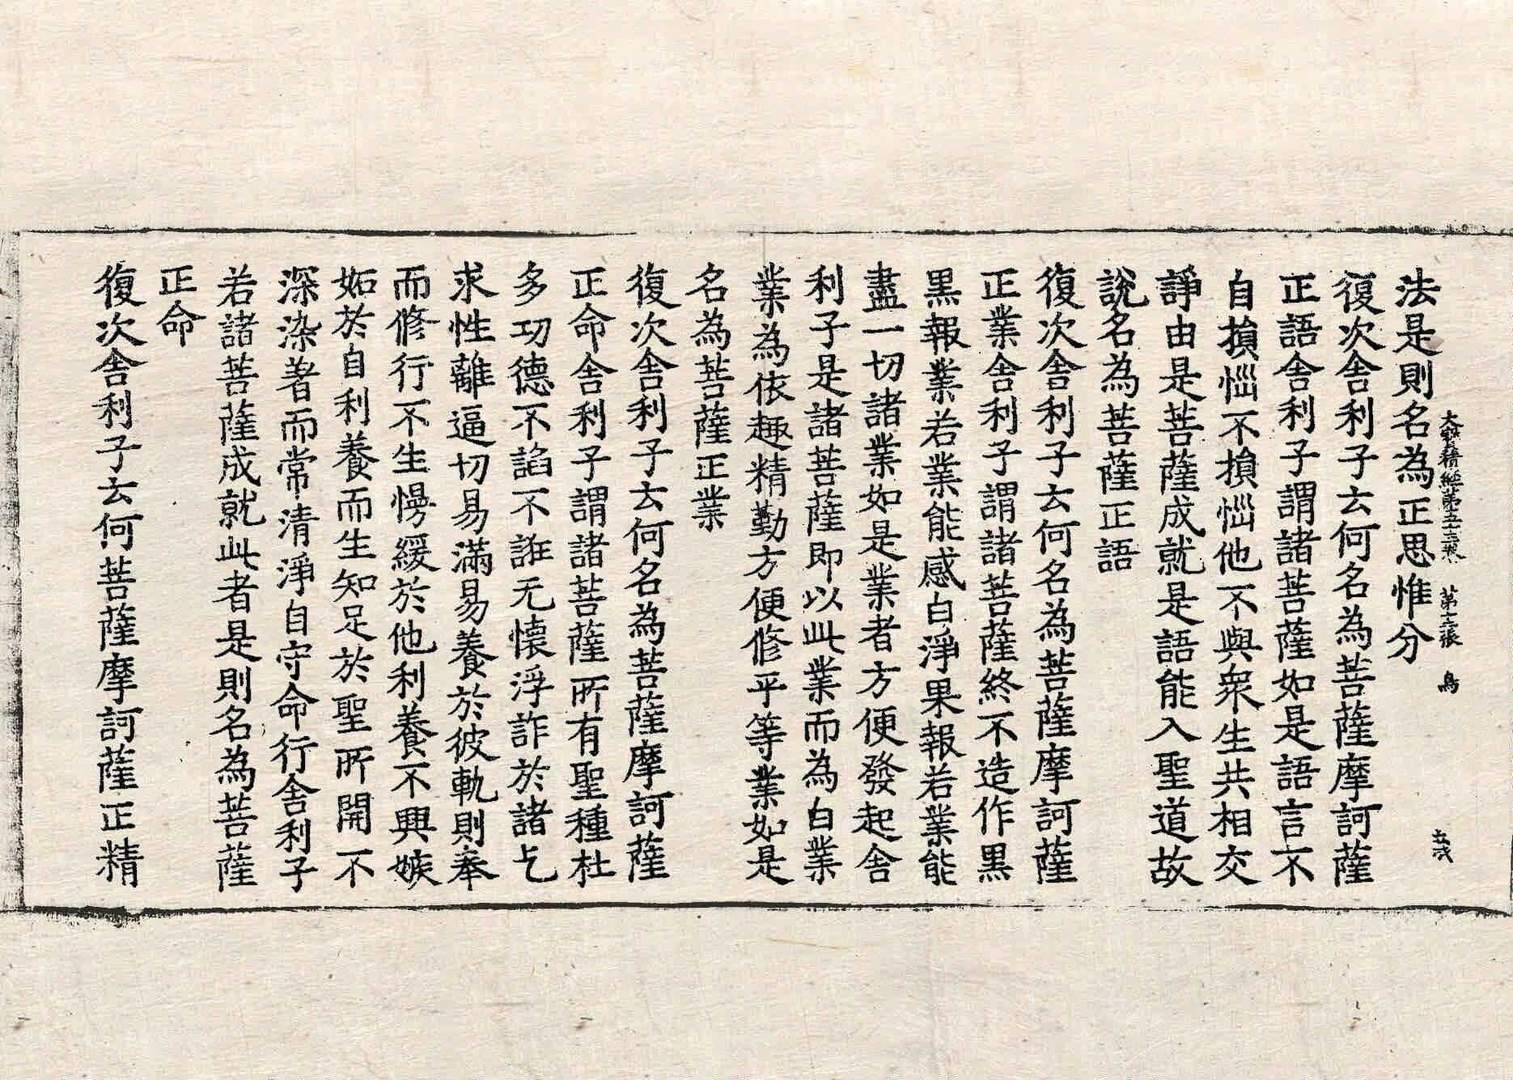 大寶積經第五 第 張 鳥
法是則名為正思惟分
復次舍利子云何名為菩薩摩訶薩
正語舍利子謂諸菩薩如是語言不
自損惱不損惱他不與衆生共相交
諍由是菩薩成就是語能入聖道故
說名為菩薩正語
復次舍利子云何名為菩薩摩訶薩
正業舍利子謂諸菩薩終不造作黑
黑報業若業能感白淨果報若業能
盡一切諸業如是業者方便發起舍
利子是諸菩薩即以此業而為白業
業為依趣精勤方便修平等業如是
名為菩薩正業
復次舍利子云何名為菩薩摩訶薩
正命舍利子謂諸菩薩所有聖種杜
多功德不諂不誑无懷浮詐於諸乞
求性離逼切易滿易養於彼軌則奉
而修行不生慢緩於他利養不興嫉
妬於自利養而生知足於聖所開不
深染著而常清淨自守命行舍利子
若諸菩薩成就此者是則名為菩薩
正命
復次舍利子云何菩薩摩訶薩正精